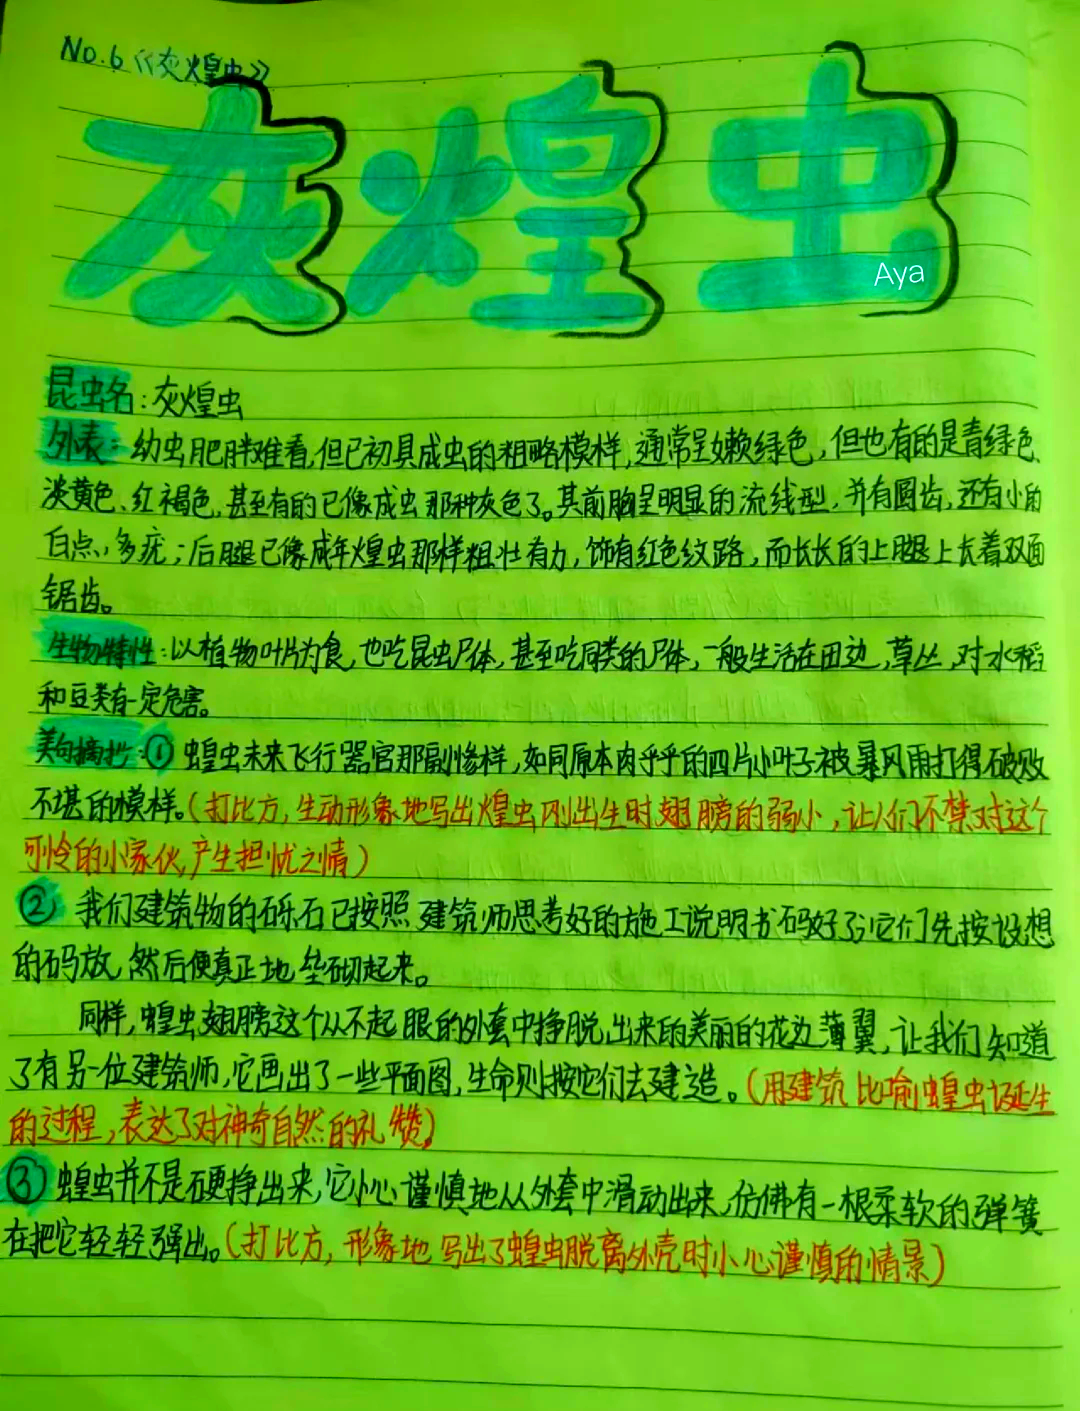 No.6《灰煌虫》
灰煌虫
Aya
昆虫名:灰煌虫
外表:幼虫肥胖难看,但已初具成虫的粗略模样,通常呈嫩绿色,但也有的是青绿色、
淡黄色、红褐色,甚至有的已像成虫那种灰色了。其前胸呈明显的流线型,并有圆齿,还有小的
白点,多疣;后腿已像成年煌虫那样粗壮有力,饰有红色纹路,而长长的上腿上长着双面
锯齿。
生物特性:以植物叶片为食,也吃昆虫尸体,甚至吃同类的尸体,一般生活在田边,草丛,对水稻
和豆类有一定危害。
美句摘抄:①蝗虫未来飞行器官那副惨样,如同原本肉乎乎的四片小叶子被暴风雨打得破败
不堪的模样。(打比方,生动形象地写出煌虫刚出生时翅膀的弱小,让人们不禁对这个
可怜的小家伙,产生担忧之情)
② 我们建筑物的砾石已按照建筑师思考好的施工说明书码好了;它们先按设想
的码放,然后便真正地垒砌起来。
同样,蝗虫翅膀这个从不起眼的外套中挣脱出来的美丽的花边薄翼,让我们知道
了有另一位建筑师,它画出了一些平面图,生命则按它们去建造。(用建筑比喻蝗虫诞生
的过程,表达了对神奇自然的礼赞)
③蝗虫并不是硬挣出来,它小心谨慎地从外套中滑动出来,仿佛有一根柔软的弹簧
在把它轻轻弹出。(打比方,形象地写出了蝗虫脱离外壳时小心谨慎的情景)